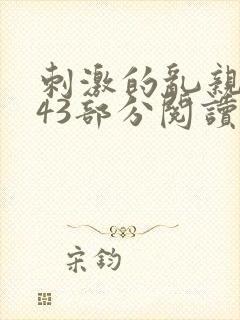 刺激的亂親
43部分閱讀
宋鈞